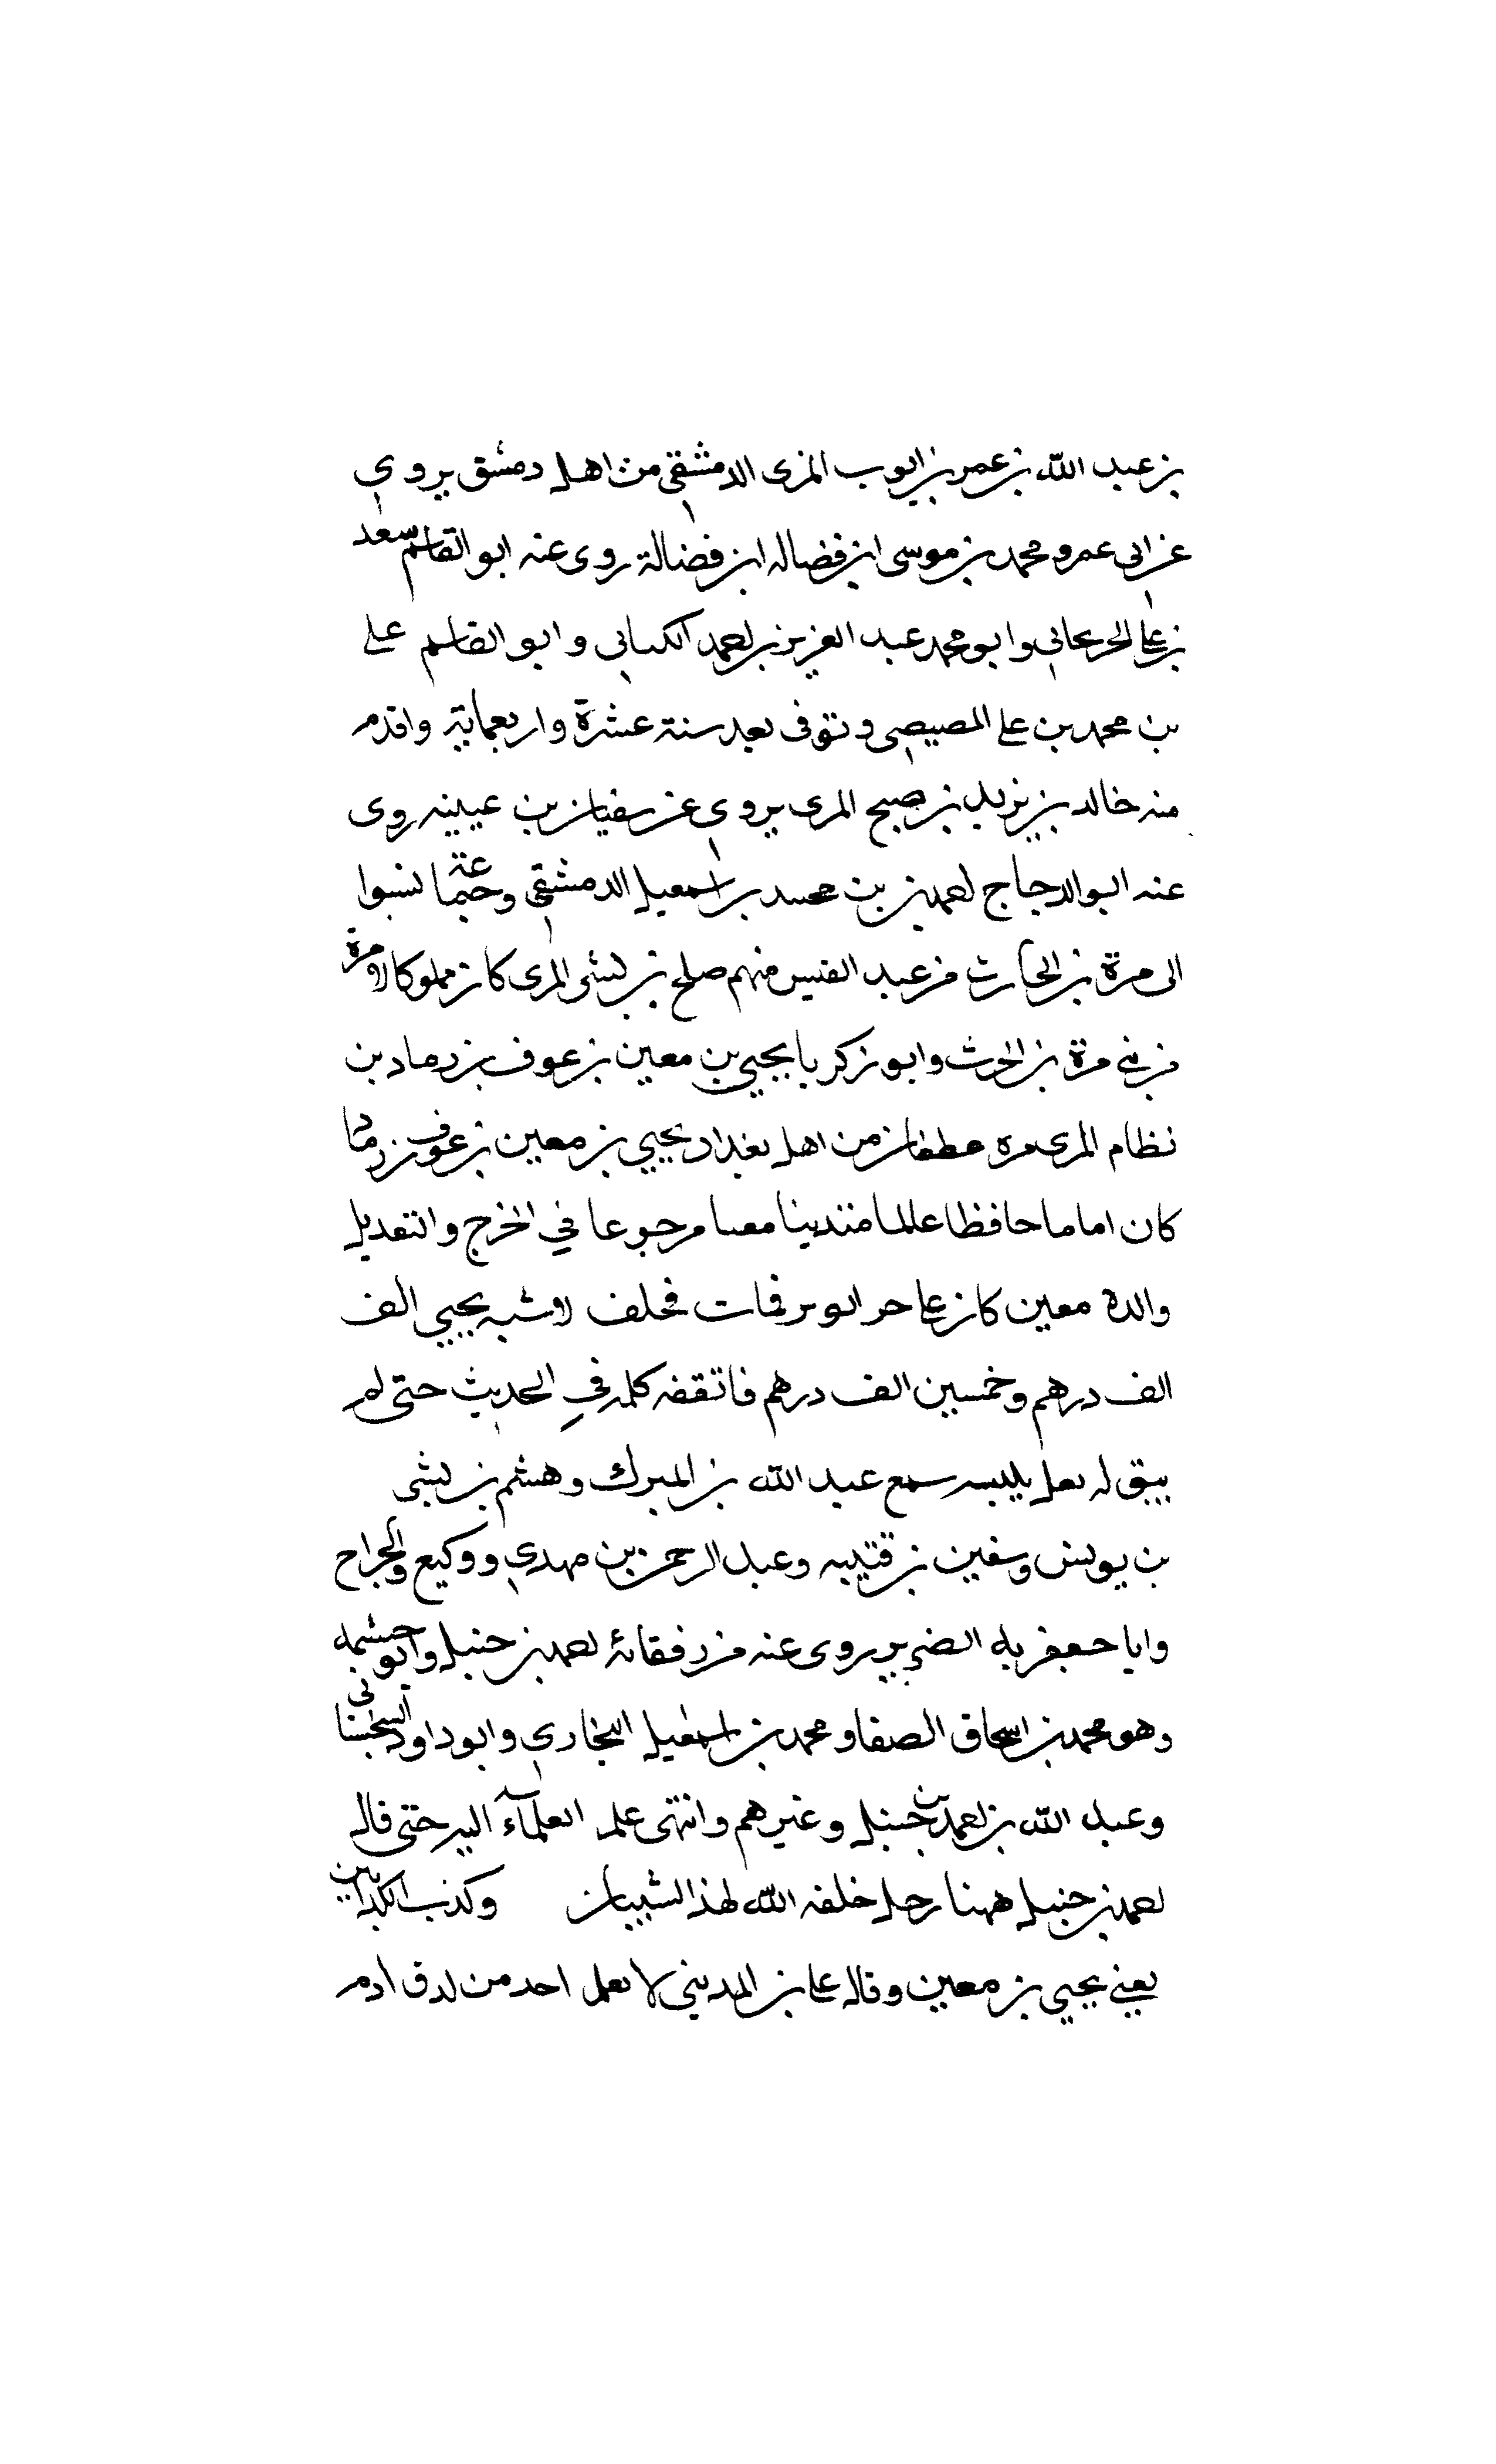 بن عبد الله بن عمر بن ايوب المزى الدمشقي من اهل دمشق يروي
عن ابي عمرو محمد بن موسى ابن فضاله ابن فضالة روى عنه ابو القاسم سعد
بن على الحرىحاني وابو محمد عبد العزيز بن احمد الكىاني وابو القاسم على
بن محمد بن على المصيصي وتوفى بعد سنة عشرة واربعماية واقدم
منه خالد بن يزيد بن صبيح المرى يروى عن سفيان بن عيينه روى
عنه ابو الدجاج احمد بن بن محمد بن اسمعيل الدمشقي نسبوا
الى مرة بن الحارث من عبد القيس منهم صلح بن بشى المرى كان مملوكا لامرة
من بني مرة بن الحرث وابو زكريا يحيى بن معين بن عوف بن زماد بن
نظام المرى مره عطفان من اهل بغداد يحيى بن معين بن عوف بن زماد
كان اماما حافظا عالما متدينا معسا مرجوعا في الخرج والتعديل
والده معين كان على حر ابو مرفات فخلف لابنه يحيي الف
الف درهم وخمسين الف درهم فاتقفه كله في الحديث حتى لم
يبق له نعل يلبسه سمع عبد الله بن المبرك وهشم بن بشى
بن يونس وسفين بن قتيبه وعبد الرحمن بن مهدي ووكيع والجراح
وابا جعفر يه الضرير روى عنه من رفقائه احمد بن حنبل وابو حشمه
وهو محمد بن اسحاق الصفاو محمد بن اسمعيل البخاري وابو داود السجستانى
وعبد الله بن احمد بن حنبل وغيرهم وانتهى علم العلمآء اليه حتى قال
احمد بن حنبل ههنا رجل خلقه الله لهذا الشيبان وكذب الكذابين
يعني يحيي بن معين وقال على بن المديني لا نعلم احد من لدق ادم